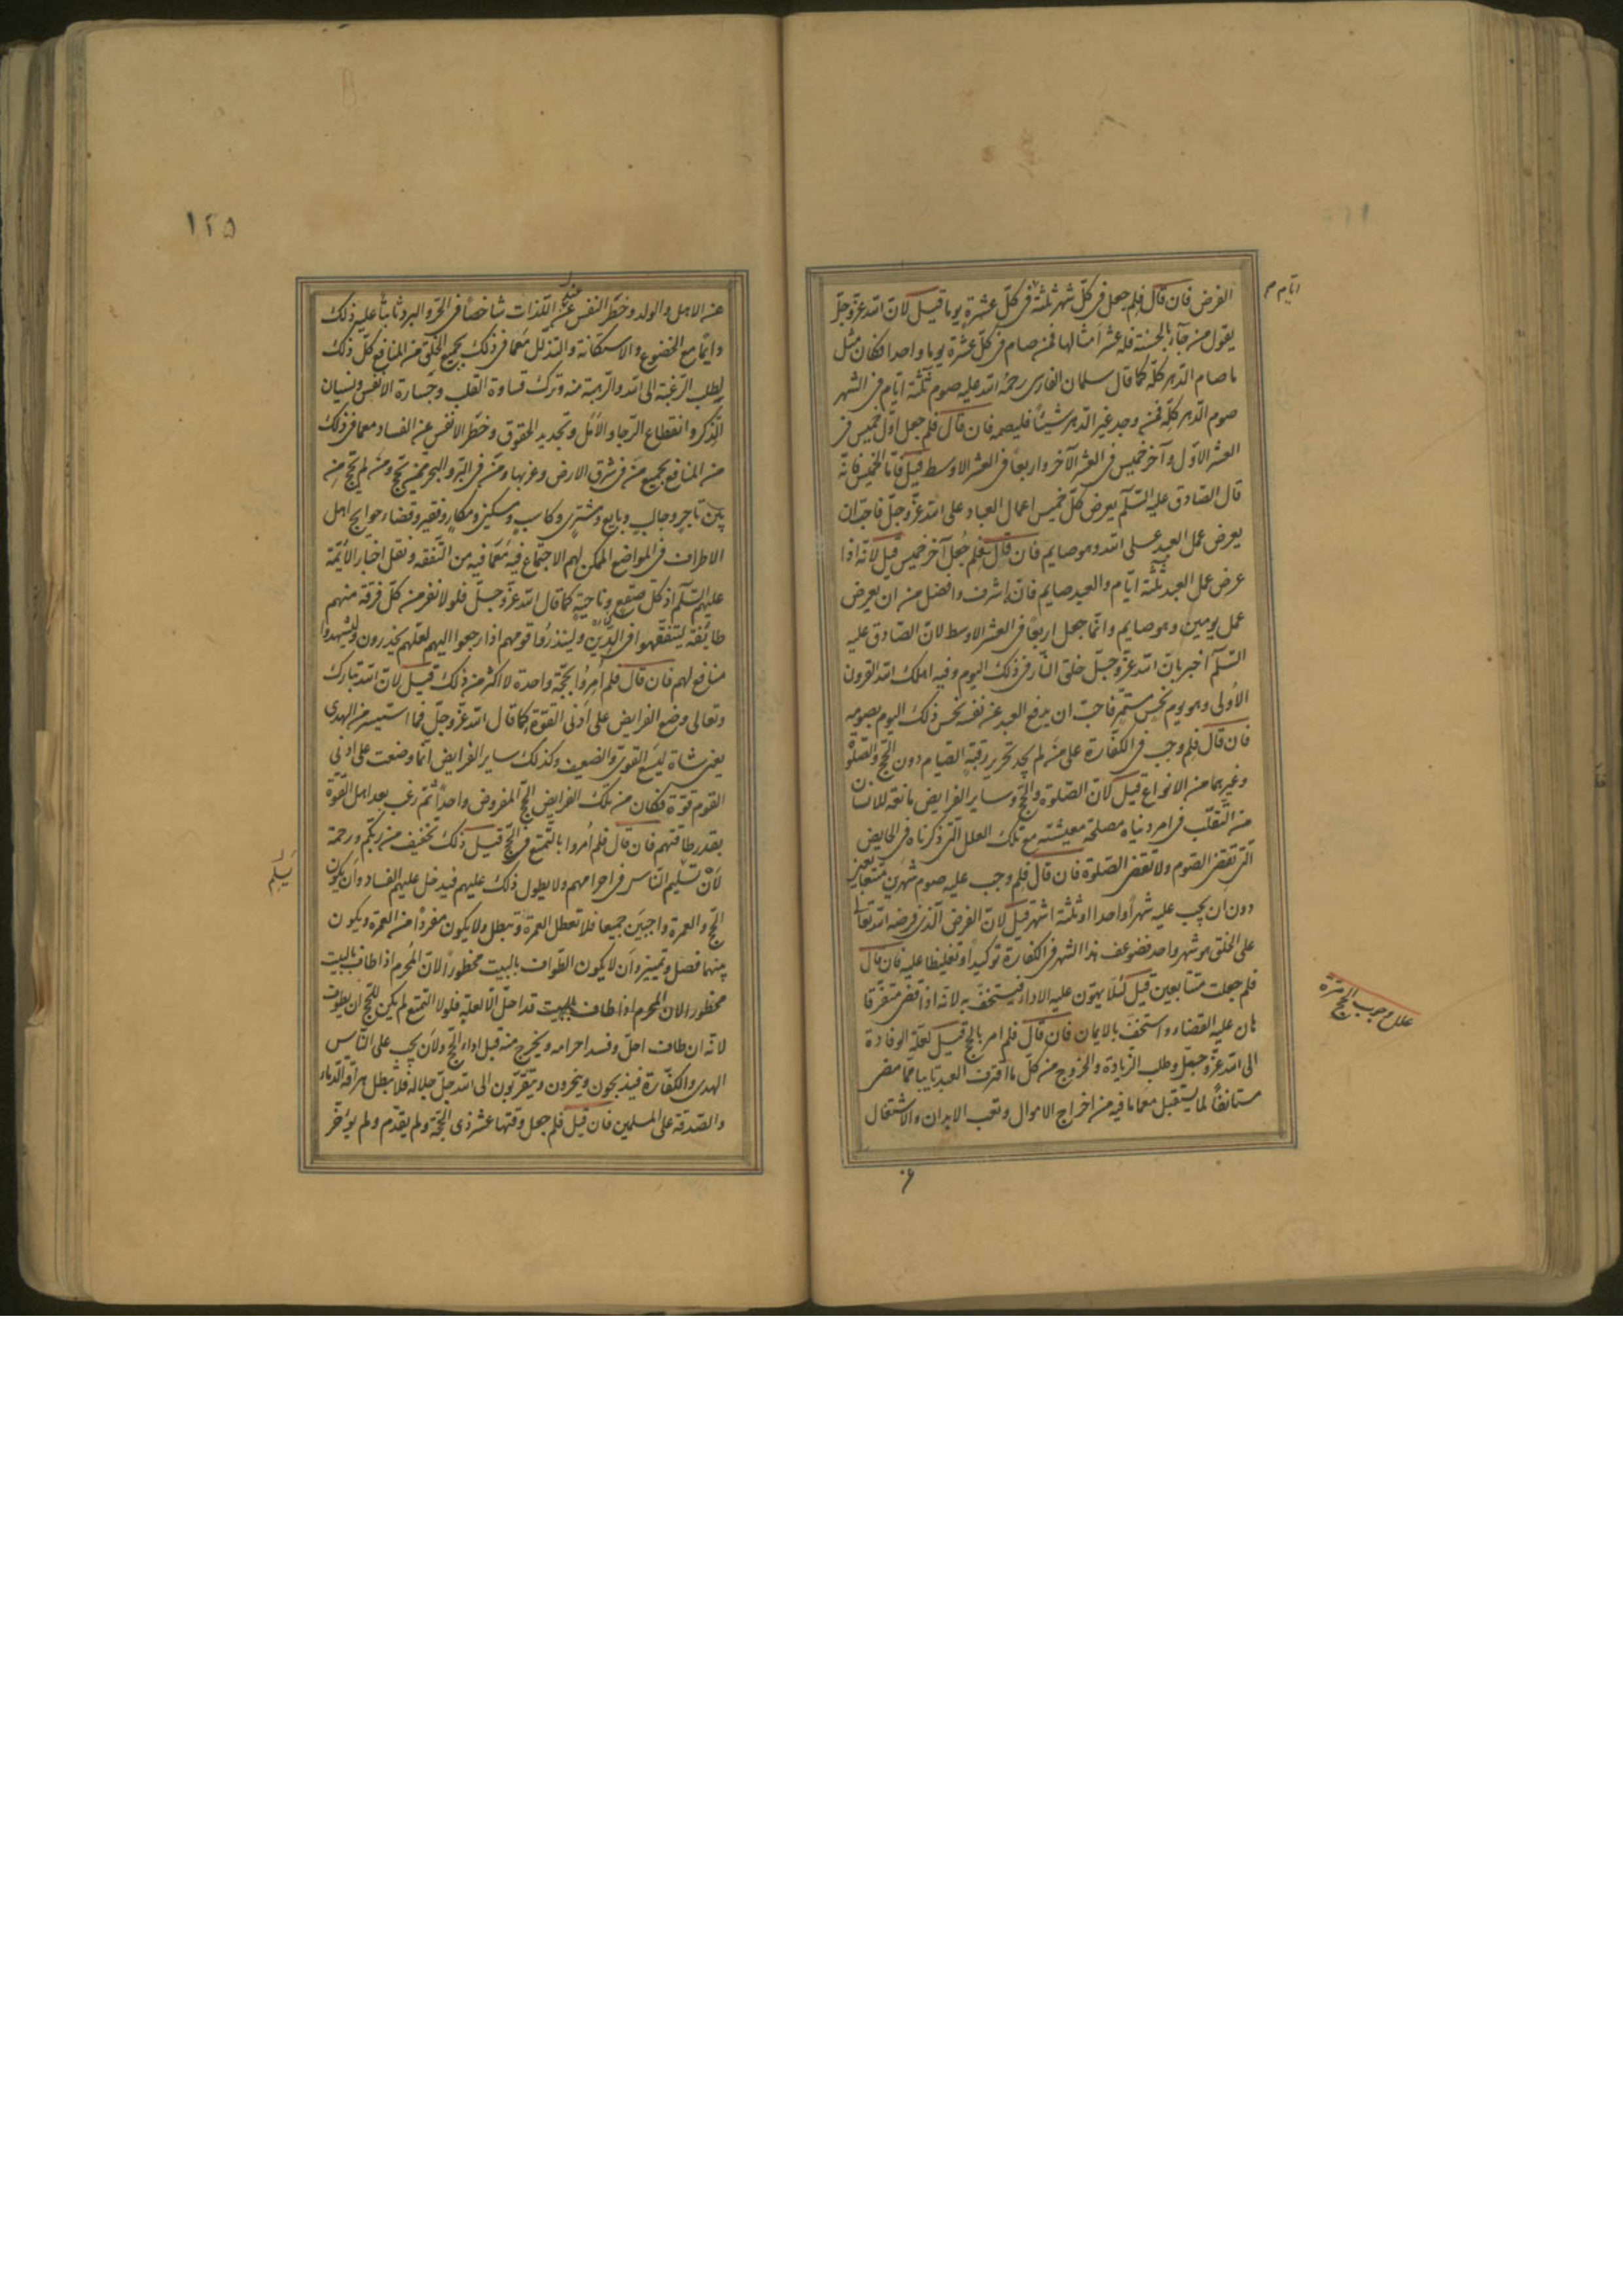 الفرض فان قال فلم جعل فى كلّ شهر ثلثة فى كلّ عشرة يوما قيل لانّ الله عزّ وجلّ
ايّام م
يقول من جآء بالحسنة فله عشر امثالها فمن صام فى كلّ عشرة يوما واحدا فكان مثل
ما صام الدّهر كلّه كما قال سلمان الفارسى رحمة الله عليه صوم ثلثة ايّام فى الشهر
صوم الدّهر كلّه فمن وجد غير الدّهر شيئاً فليصمه فان قال فلم جعل اوّل خميس فى
العشر الاوّل وآخر خميس فى العشر الآخر واربعاً فى العشر الاوسط قيل فامّا الخميس فانّه
قال الصّادق عليه السّلم يعرض كلّ خميس اعمال العباد على الله عزّ وجلّ فاحبّ ان
يعرض عمل العبد على الله وهو صايم فان قال فلم جُعل آخر خميس قيل لانّه اذا
عرض عمل العبد ثلثة ايّام والعبد صايم فانّه اشرف وافضل من ان يعرض
عمل يومين وهو صايم وانّما جعل اربعاً فى العشر الاوسط لانّ الصّادق عليه
السّلم اخبر بانّ الله عزّ وجلّ خلق النّار فى ذلك اليوم وفيه اهلك الله القرون
الاُولى وهو يوم نحسٍ مستمرّ فاحبّ ان يدفع العبد عن نفسه نحس ذلك اليوم بصومه
فان قال فلم وجب فى الكفّارة على من لم يجد تحرير رقبة الصّيام دون الحجّ والصّلوة
وغيرهما من الانواع قيل لانّ الصّلوة والحجّ وساير الفرايض مانعة للانسان
من التقلّب فى امر دنياه مصلحة معيشته مع تلك العلل التّى ذكرناه فى الحايض
التّى تقضى الصّوم ولا تقضى الصّلوة فان قال فلم وجب عليه صوم شهرين متتابعين
دون ان يجب عليه شهراً واحدا او ثلثة اشهر قيل لانّ الفرض الّذى فرضه الله تعالى
على الخلق هو شهر واحد فضوعف هذا الشهر فى الكفّارة توكيداً وتغليظا عليه فان قال
فلم جعلت متتابعين قيل لئلّا يهون عليه الاداء فيستخفّ به لانّه اذا قضى متفرّقا
هان عليه القضاء واستخفّ بالايمان فان قال فلم امر بالحجّ قيل لعلّة الوفادة
الى الله عزّ وجلّ وطلب الزّيادة والخروج من كلّ ما اقترف العبد تايباً ممّا مضى
مستانفاً لما يستقبل مع ما فيه من اخراج الاموال وتعب الابدان والاشتغال
علل وجوب الحجّ مرّة
١٢٥
عن الاهل والولد وحظر النفس عن اللّذات شاخصاً فى الحرّ والبرد ثابتاً عليه ذلك
دايماً مع الخضوع والاستكانة والتذلّل مع ما فى ذلك بجميع الخلق من المنافع كلّ ذلك
لطلب الرّغبة الى الله والرّهبة منه وترك قساوة القلب وجسارة الانفس ونسيان
الذّكر وانقطاع الرّجا والامل وتجديد الحقوق وحظر الانفس عن الفساد مع ما فى ذلك
من المنافع بجميع من فى شرق الارض وغربها ومن فى البرّ والبحر ممّن يحجّ وممّن لم يحجّ من
بين تاجرٍ وجالبٍ وبايع ومشترى وكاسبٍ ومسكينٍ ومكارٍ وفقيرٍ وقضاء حوايج اهل
الاطراف فى المواضع الممكن لهم الاجتماع فيه مع ما فيه من التّفقّه ونقل اخبار الائمّة
عليهم السّلم اذ كلّ صقعٍ وناحيةٍ كما قال الله عزّ وجلّ فلولا نفر من كلّ فرقة منهم
طائفة ليتفقّهوا فى الدّين ولينذروا قومهم اذا رجعوا اليهم لعلّهم يحذرون وليشهدوا
منافع لهم فان قال فلم اُمروا بحجّة واحدة لا اكثر من ذلك قيل لانّ الله تبارك
وتعالى وضع الفرايض على ادنى القوّة كما قال الله عزّ وجلّ فما استيسر من الهدى
يعنى شاة ليسع القوىّ والضعيف وكذلك ساير الفرايض انّما وضعت على ادنى
القوم قوّة فكان من تلك الفرايض الحجّ المفروض واحداً ثمّ رغب بعد اهل القوّة
بقدر طاقتهم فان قال فلم اُمروا بالتّمتّع فى الحجّ قيل ذلك تخفيف من ربّكم ورحمة
لان تسليم النّاس فى احرامهم ولا يطول ذلك عليهم فيدخل عليهم الفساد وان يكون
يسلم
الحجّ والعمرة واجبين جميعا فلا تعطل العمرة وتبطل ولا يكون مفرداً من العمرة ويكون
بينهما فصل وتمييز وان لا يكون الطّواف بالبيت محظوراً لانّ المحرم اذا طاف بالبيت
محظورا لان المحرم اذا طاف بالبيت قد احلّ الّا لعلّة فلولا التمتّع لم يكن للحاجّ ان يطوف
لانّه ان طاف احلّ وفسد احرامه ويخرج منه قبل اداء الحجّ ولان يجب على النّاس
الهدى والكفّارة فيذبحون وينحرون ويتقرّبون الى الله جلّ جلاله فلا تبطل هراقة الدّماء
والصّدقة على المسلمين فان قيل فلم جعل وقتها عشر ذى الحجّة ولم يقدّم ولم يؤخّر